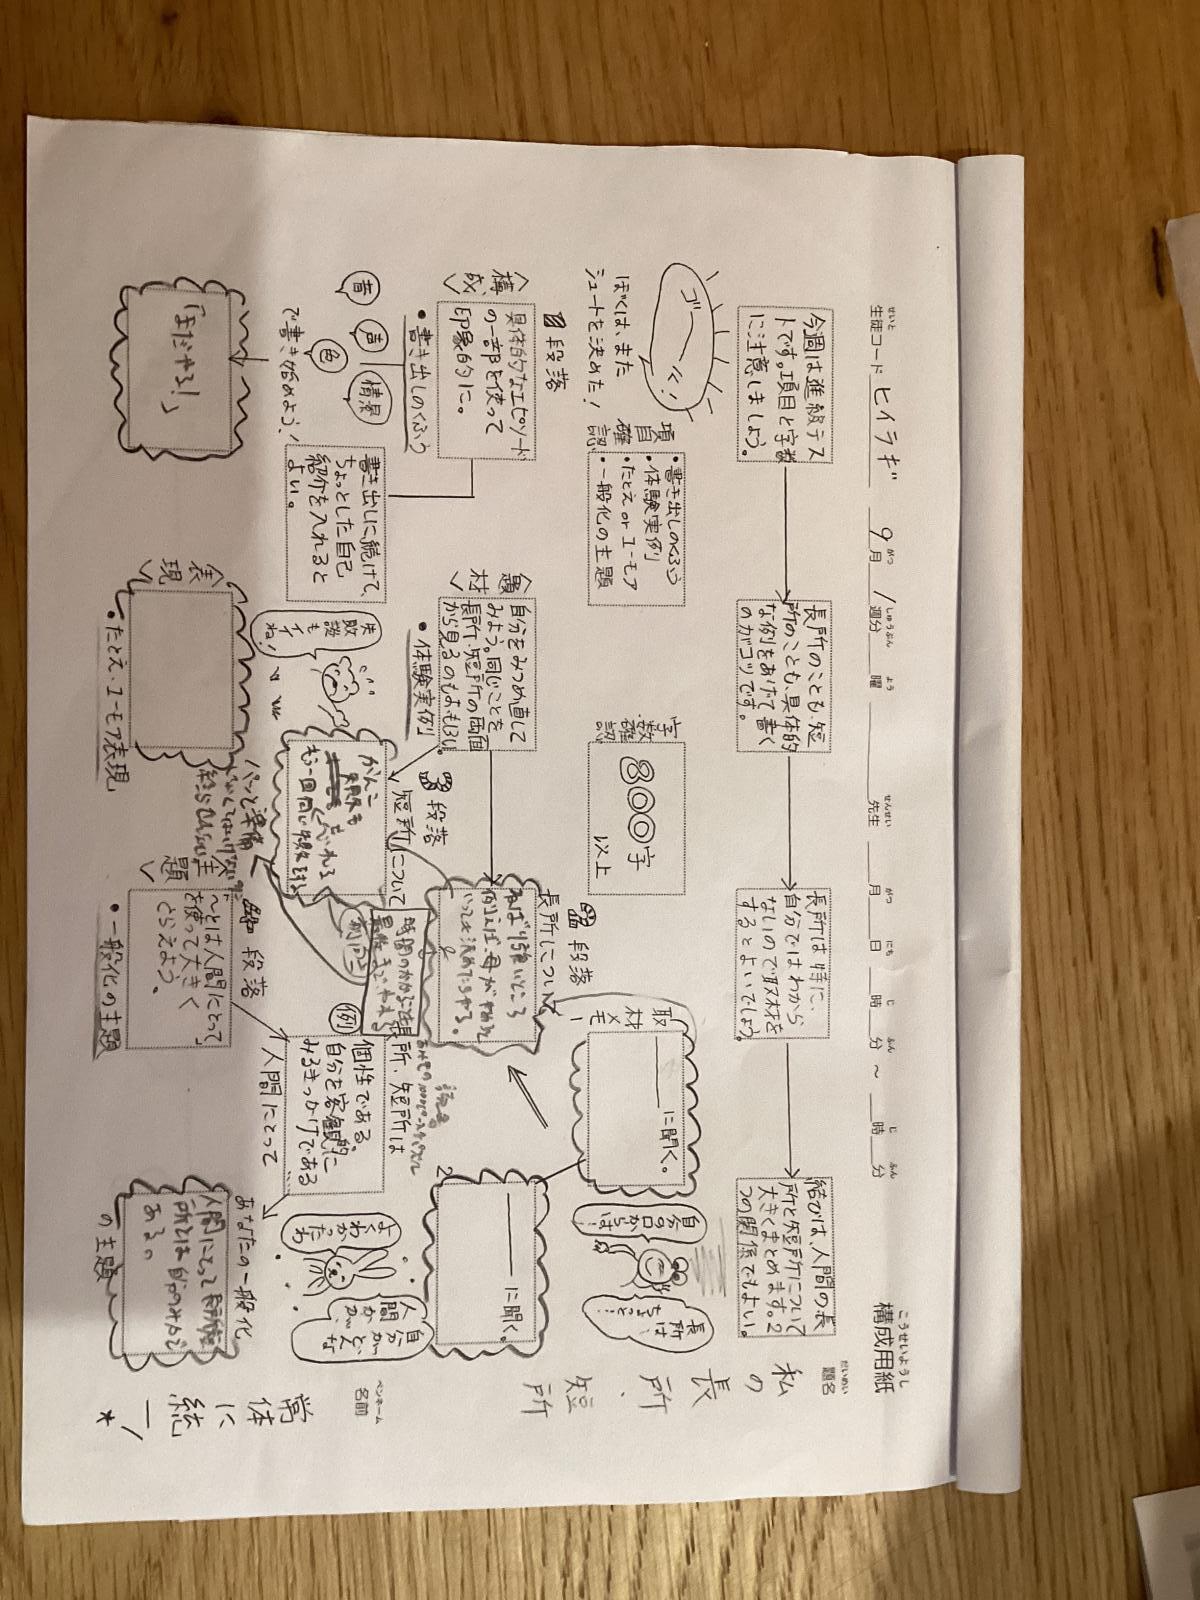 構成用紙
生徒コード ヒイラギ 9月 1週分 曜 先生 月 日 時 分 ~ 時 分
題名
私の長所、短所
ペンネーム
名前
常体に統一/*
今週は進級テス
トです。項目と字数
に注意しましょう。
長所のことも短
所のことも、具体的
な例をあげて書く
のがコツです。
長所は特に、
自分ではわから
ないので取材を
するとよいでしょう。
結びは、人間の長
所と短所について
大きくまとめます。2
つの関係でもよい。
ゴーール!
ぼくは、また
シュートを決めた!
項目確認
・書き出しのくふう
・体験実例
・たとえorユーモア
・一般化の主題
字数確認
800字
以上
取材メモ
1
に聞く。
2
に聞く。
自分の口からは…
長所は、
ちょっと…
<構成>
段落
具体的なエピソード
の一部を使って
印象的に。
・書き出しのくふう
音
声
色
情景
で書き始めよう!
「まだやる!」
書き出しに続けて、
ちょっとした自己
紹介を入れると
よい。
<題材>
自分をみつめ直して
みよう。同じことを
長所、短所の両面
から見るのもおもしろい。
・体験実例
段落
短所について
がんこ
もう一回同じ
段落
長所について
ねばり強いところ
例えば、母が
時間のかかる
失敗談もイイね!
<表現>
・たとえ・ユーモア表現
<主題>
段落
「〜とは人間にとって」
を使って大きく
とらえよう。
・一般化の主題
人間にとって
長所、短所は
例
個性である
自分を客観的に
みるきっかけである
よくわかったわ
自分がどんな
人間か…
あなたの一般化
の主題
人間にとって
ある。